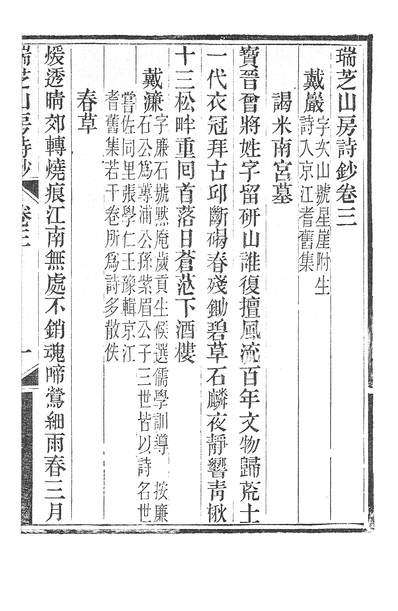 瑞芝山房詩鈔卷三
戴巖字次山號星崖附生
詩入京江耆舊集
謁米南宮墓
寶晉曾將姓字留研山誰復擅風流百年文物歸荒土
一代衣冠拜古邱斷碣春殘鋤碧草石麟夜靜響青楸
十三松畔重回首落日蒼茫下酒樓
戴濂字廉石號默庵歲貢生候選儒學訓導 按廉
石公為蓴浦公孫紫眉公子三世皆以詩名世
嘗佐同里張學仁王豫輯京江
耆舊集若干卷所為詩多散佚
春草
煖透晴郊轉燒痕江南無處不銷魂啼鶯細雨春三月
瑞芝山房詩鈔 卷三 一